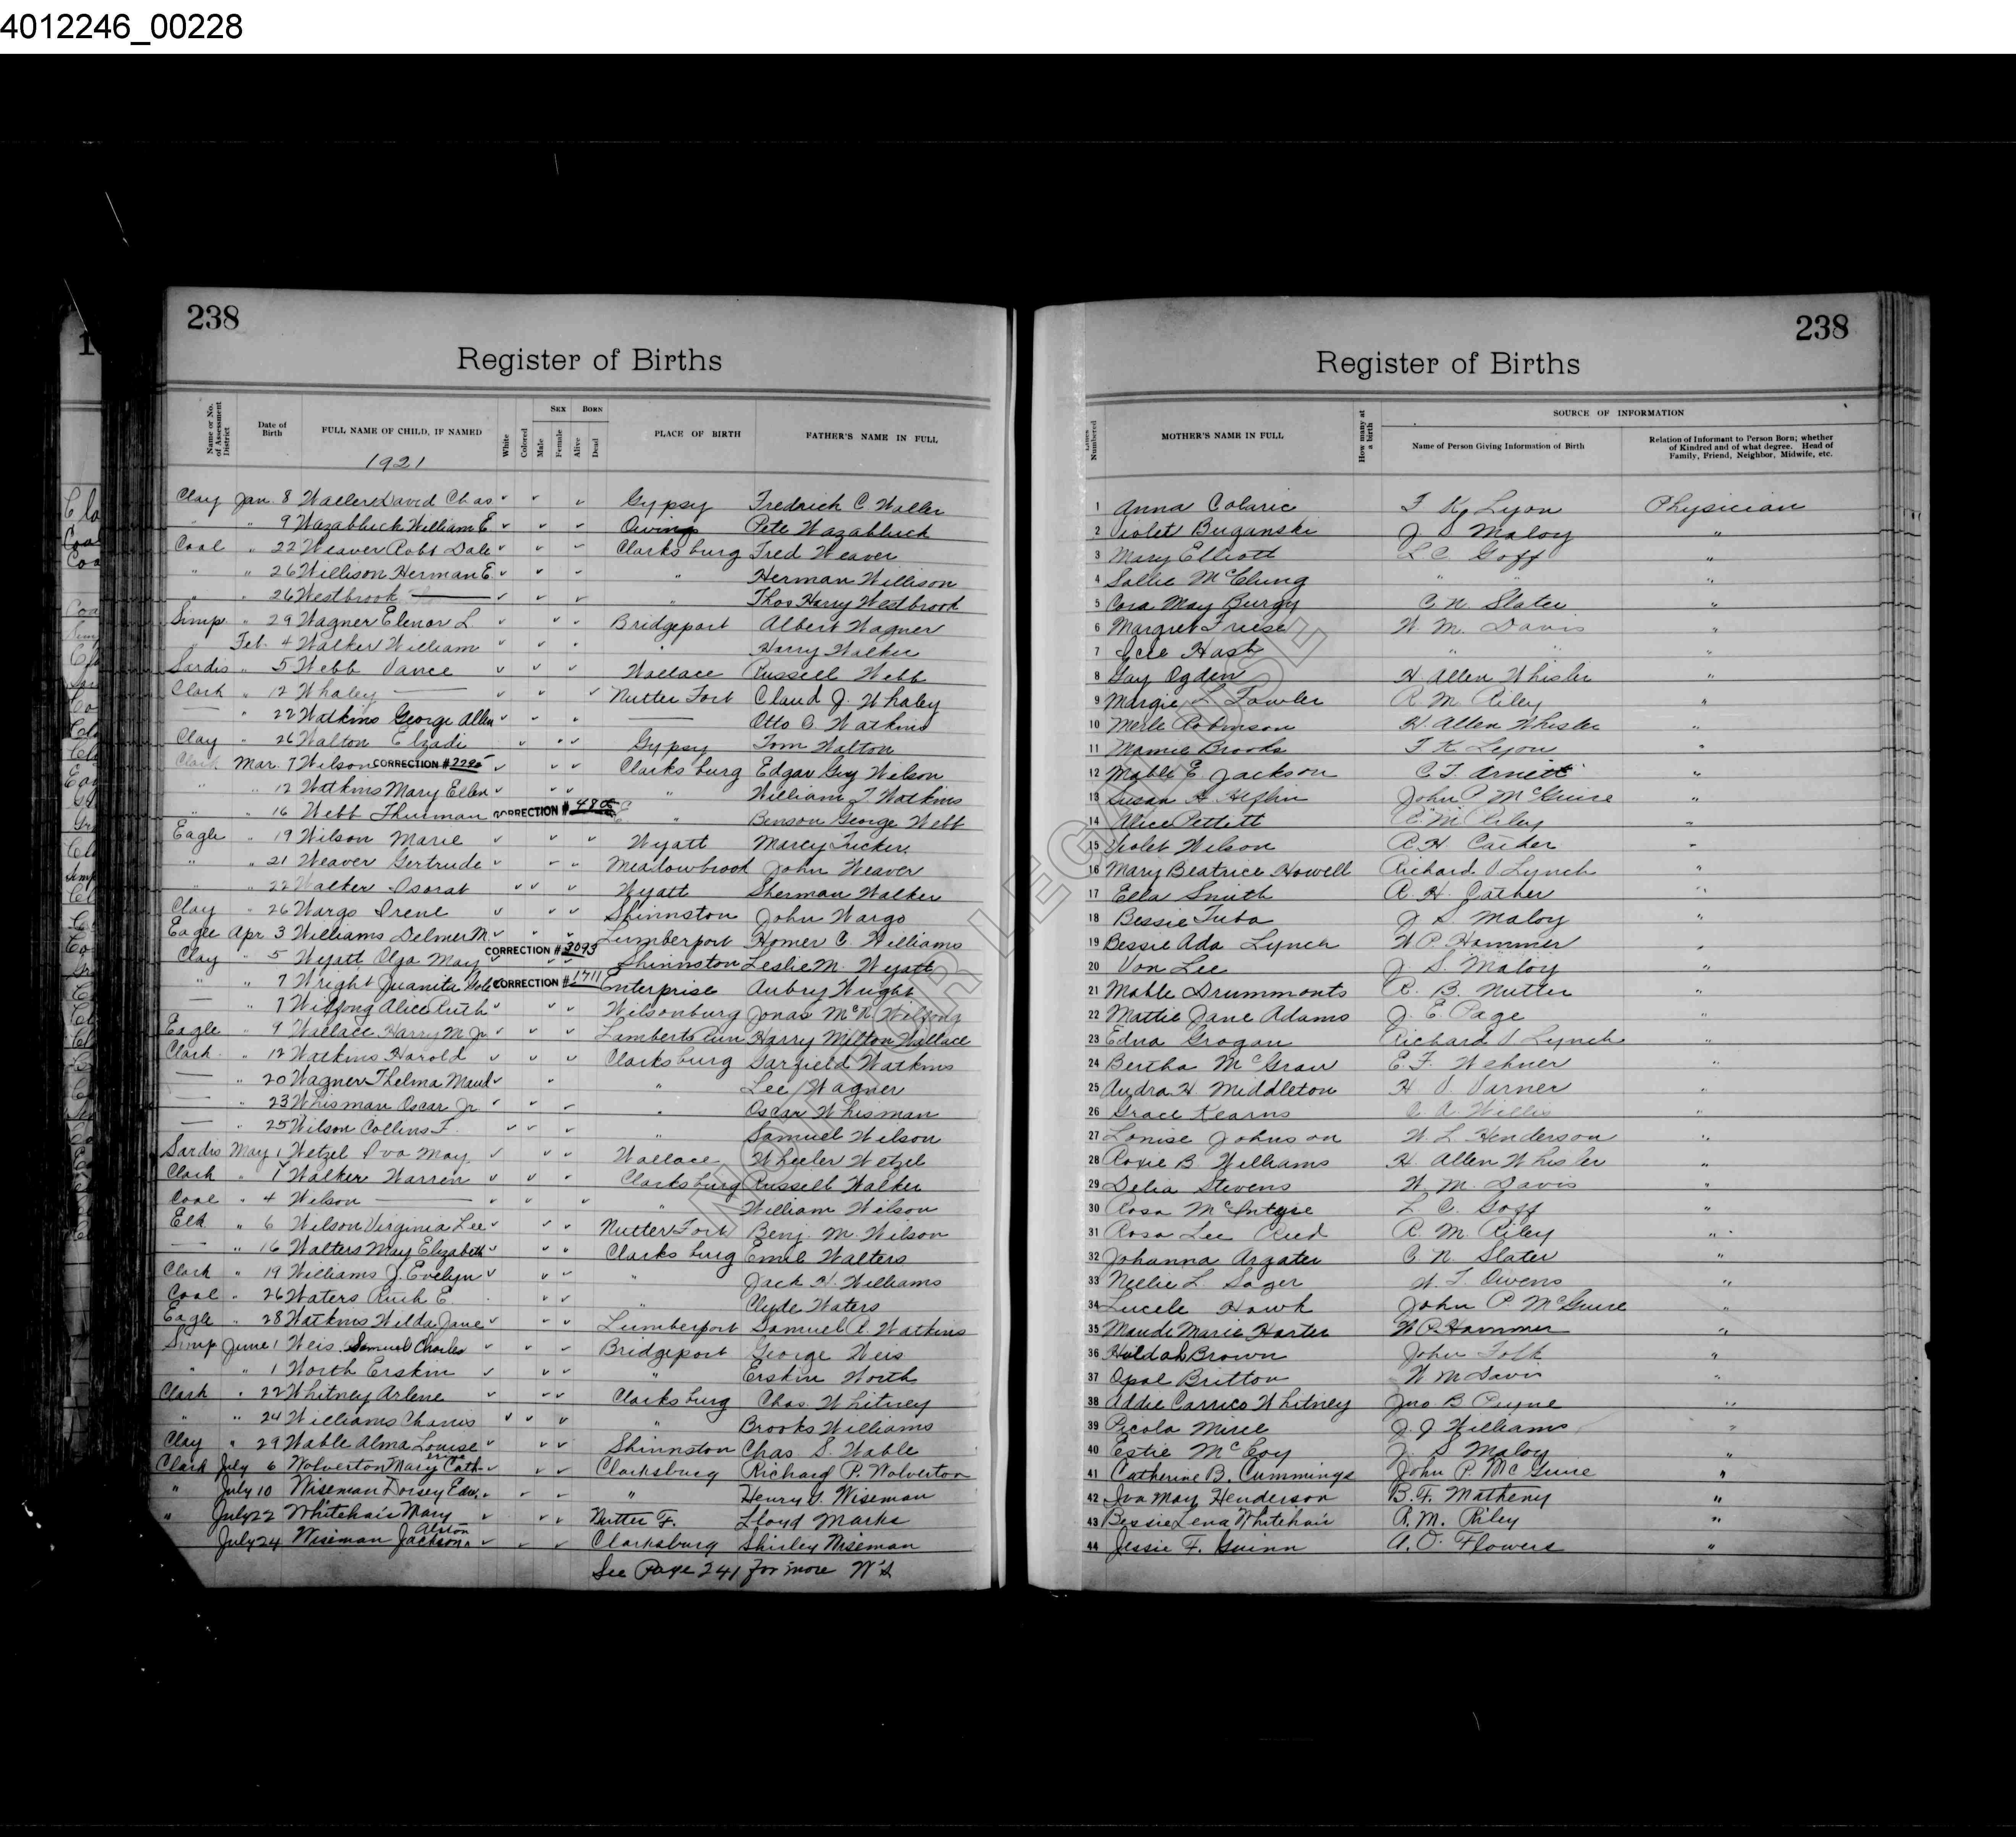 4012246_00228
238
Register of Births
Name or No. of Assessment District
Date of Birth
FULL NAME OF CHILD, IF NAMED
White
Colored
SEX
Male
Female
BORN
Alive
Dead
PLACE OF BIRTH
FATHER'S NAME IN FULL
1921
Clay Jan. 8 Waller David Chas Gypsy Fredrick C Waller
" " 9 Wazabluck William E Owings Pete Wazabluck
Coal " 22 Weaver Robt Dale Clarksburg Fred Weaver
" " 26 Willison Herman E. " Herman Willison
" " 26 Westbrook — " Thos Harry Westbrook
Simp " 29 Wagner Elenor L Bridgeport Albert Wagner
" Feb. 4 Walker William " Harry Walker
Sardis " 5 Webb Vance Wallace Russell Webb
Clark " 12 Whaley — Nutter Fort Claud J. Whaley
— " 22 Watkins George Allen — Otto O. Watkins
Clay " 26 Walton Elzadi Gypsy Tom Walton
Clark Mar. 7 Wilson CORRECTION # Clarksburg Edgar Guy Wilson
" " 12 Watkins Mary Ellen " William T Watkins
" " 16 Webb Thurman CORRECTION # " Benson George Webb
Eagle " 19 Wilson Marie Wyatt Marcy Tucker
" " 21 Weaver Gertrude Meadowbrook John Weaver
" " 22 Walker Osorat Wyatt Sherman Walker
Clay " 26 Wargo Irene Shinnston John Wargo
Eagle Apr 3 Williams Delmer M. Lumberport Homer C Williams
Clay " 5 Wyatt Olga May CORRECTION # 3093 Shinnston Leslie M. Wyatt
" " 7 Wright Juanita CORRECTION # 1711 Enterprise Aubry Wright
— " 7 Wilfong Alice Ruth Wilsonburg Jonas McK Wilfong
Eagle " 9 Wallace Harry M Jr Lamberts Run Harry Milton Wallace
Clark " 12 Watkins Harold Clarksburg Garfield Watkins
— " 20 Wagner Thelma Maud " Lee Wagner
— " 23 Whisman Oscar Jr " Oscar Whisman
— " 25 Wilson Collins F. " Samuel Wilson
Sardis May 1 Wetzel Iva May Wallace Wheeler Wetzel
Clark " 1 Walker Warren Clarksburg Russell Walker
Coal " 4 Wilson — " William Wilson
Elk " 6 Wilson Virginia Lee Nutter Fort Benj. M. Wilson
— " 16 Walters May Elizabeth Clarksburg Emil Walters
Clark " 19 Williams J. Evelyn " Jack H. Williams
Coal " 26 Waters Ruth E " Clyde Waters
Eagle " 28 Watkins Wilda Jane Lumberport Samuel R. Watkins
Simp June 1 Weis Samuel Charles Bridgeport George Weis
" " 1 Worth Erskin " Erskin Worth
Clark " 22 Whitney Arlene Clarksburg Chas. Whitney
" " 24 Williams Charis " Brooks Williams
Clay " 29 Wable Alma Louise Shinnston Chas S. Wable
Clark July 6 Wolverton Mary Cath-erine Clarksburg Richard P. Wolverton
" July 10 Wiseman Dorsey Edw. " Henry S. Wiseman
" July 22 Whitehair Mary Nutter F. Lloyd Marks
July 24 Wiseman Jackson Alston Clarksburg Shirley Wiseman
See Page 241 for more W's
238
Register of Births
Lines Numbered
MOTHER'S NAME IN FULL
How many at a birth
SOURCE OF INFORMATION
Name of Person Giving Information of Birth
Relation of Informant to Person Born; whether of Kindred and of what degree. Head of Family, Friend, Neighbor, Midwife, etc.
1 Anna Colaric F K. Lyon Physician
2 Violet Buganski J S Maloy "
3 Mary Elliott L C Goff "
4 Sallie McClung " " "
5 Cora May Burgy C. N. Slater "
6 Margret Friese W. M. Davis "
7 Hast " " "
8 Gay Ogden H Allen Whisler "
9 Margie L Fowler R. M. Riley "
10 Merle Robinson H. Allen Whisler "
11 Mamie Brooks F K Lyon "
12 Mable E. Jackson C T. Arnett "
13 Susan A Heflin John P McGuire "
14 Alice Pettitt R. M. Riley "
15 Violet Wilson R H. Cather "
16 Mary Beatrice Howell Richard V Lynch "
17 Ella Smith R. H. Cather "
18 Bessie Tuba J S Maloy "
19 Bessie Ada Lynch W P. Hammer "
20 Von Lee J. S. Maloy "
21 Mable Drummonts R. B. Nutter "
22 Mattie Jane Adams J. E. Page "
23 Edna Grogan Richard V Lynch "
24 Bertha McGraw E. F. Wehner "
25 Audra H. Middleton H V Varner "
26 Grace Kearns C. A. Willis "
27 Louise Johnson W. L Henderson "
28 Roxie B Williams H. Allen Whisler "
29 Delia Stevens W. M. Davis "
30 Rosa McIntyre L. C. Goff "
31 Rosa Lee Reed R. M. Riley "
32 Johanna Argater C. N. Slater "
33 Nellie L. Sager W. T. Owens "
34 Lucele Hawk John P. McGuire "
35 Maude Marie Harter W P. Hammer "
36 Huldah Brown John Folk "
37 Opal Britton W M Davis "
38 Addie Carrico Whitney Jno. B Payne "
39 Picola J. J Williams "
40 Estie McCoy J. S Maloy "
41 Catherine B. Cummings John P. McGuire "
42 Iva May Henderson B. F. Matheny "
43 Bessie Lena Whitehair R. M. Riley "
44 Jessie F. Guinn A. O. Flowers "